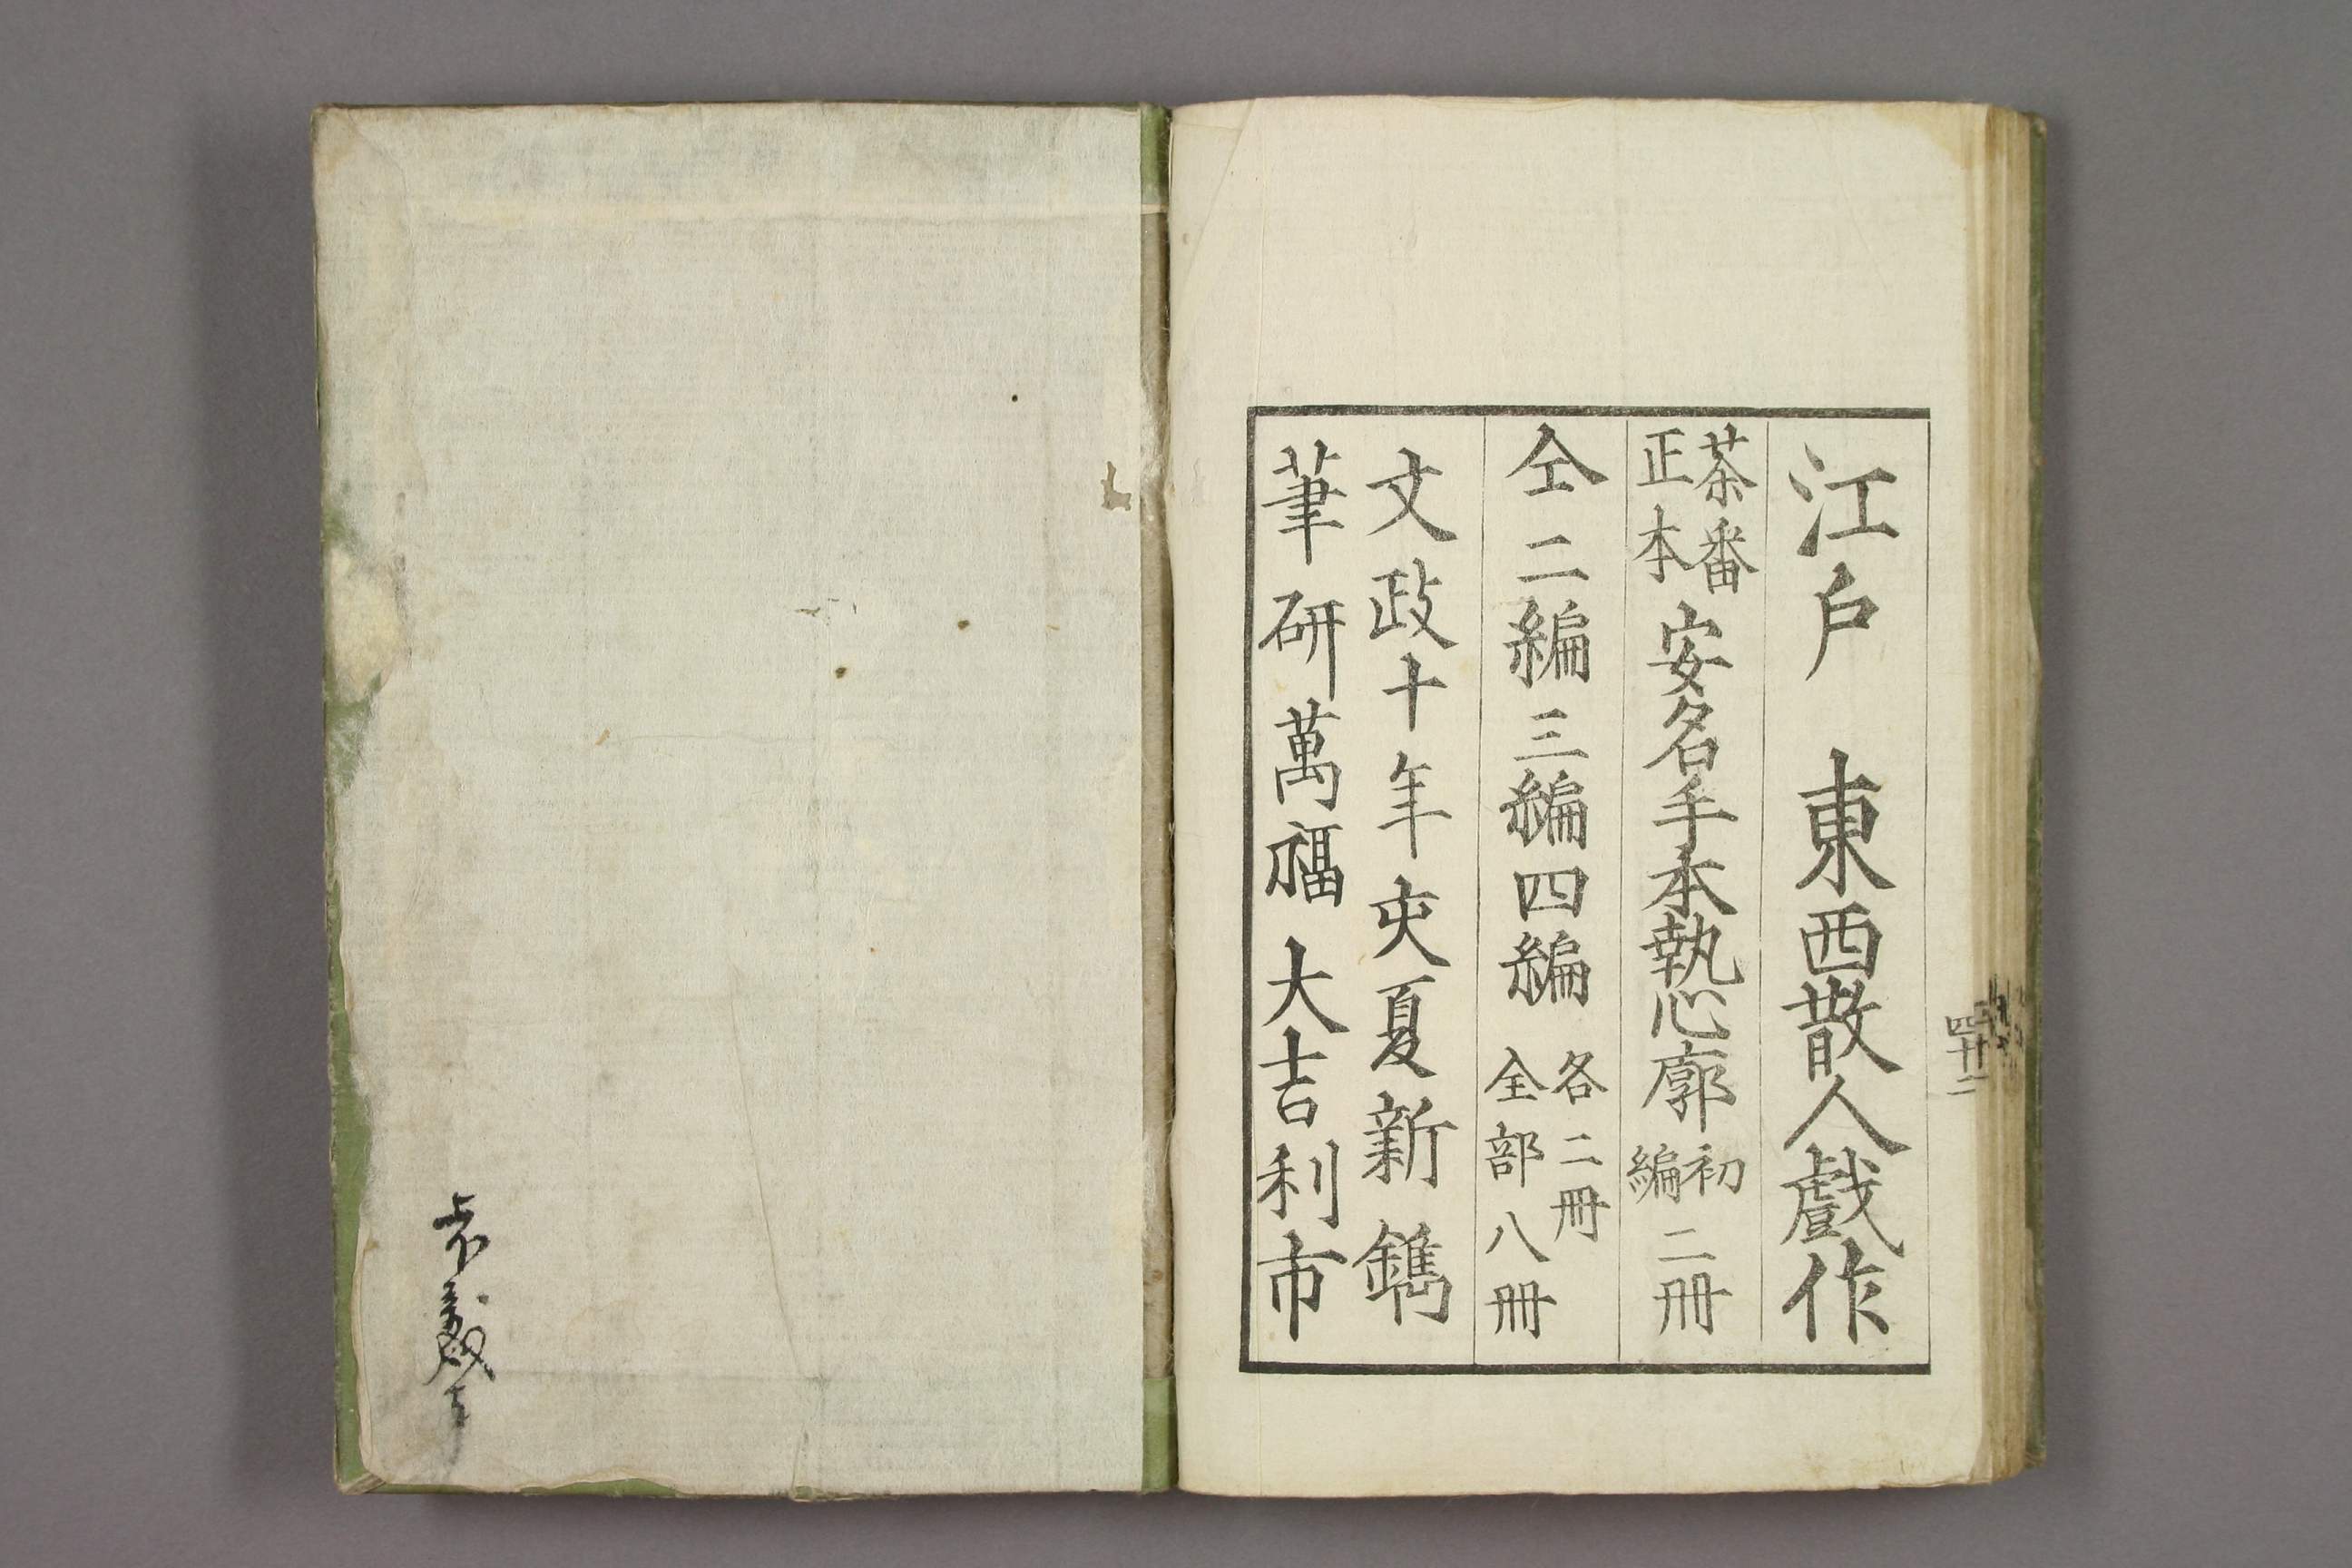 江戸　東西散人戲作
茶番正本 安名手本執心廓 初編 二冊
仝二編三編四編 各二冊 全部八冊
文政十年亥夏新鐫
筆研萬福 大吉利市